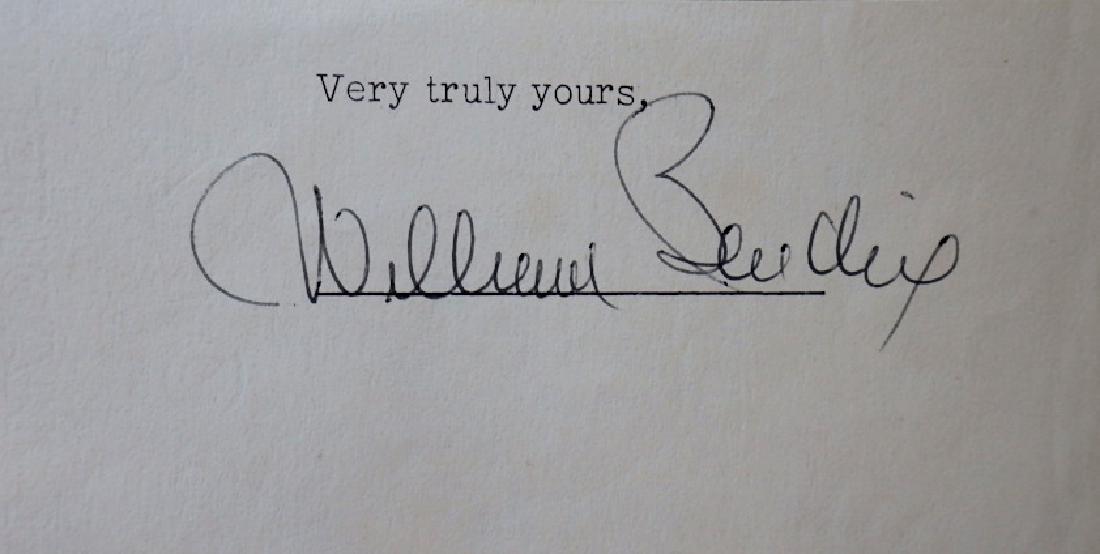 Very truly yours,
William Bendix